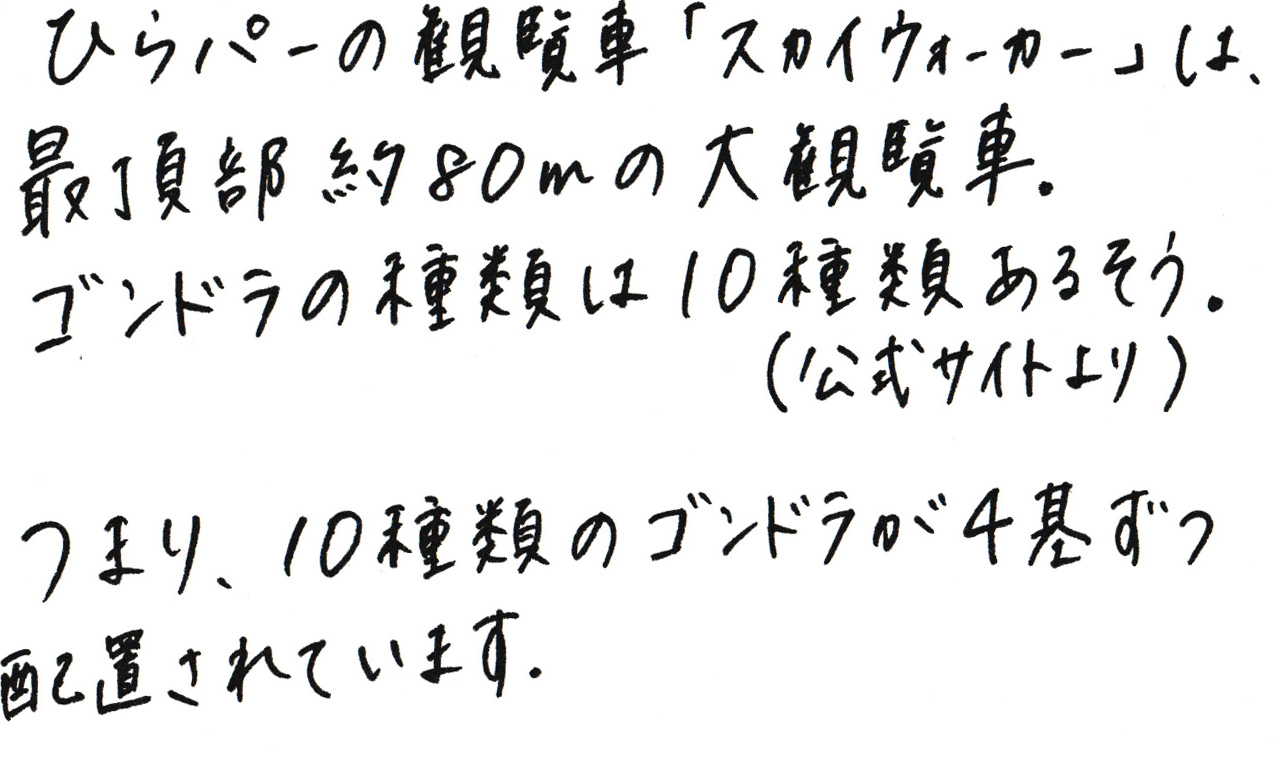 ひらパーの観覧車「スカイウォーカー」は、
最頂部約80mの大観覧車.
ゴンドラの種類は10種類あるそう.
(公式サイトより)
つまり、10種類のゴンドラが4基ずつ
配置されています.